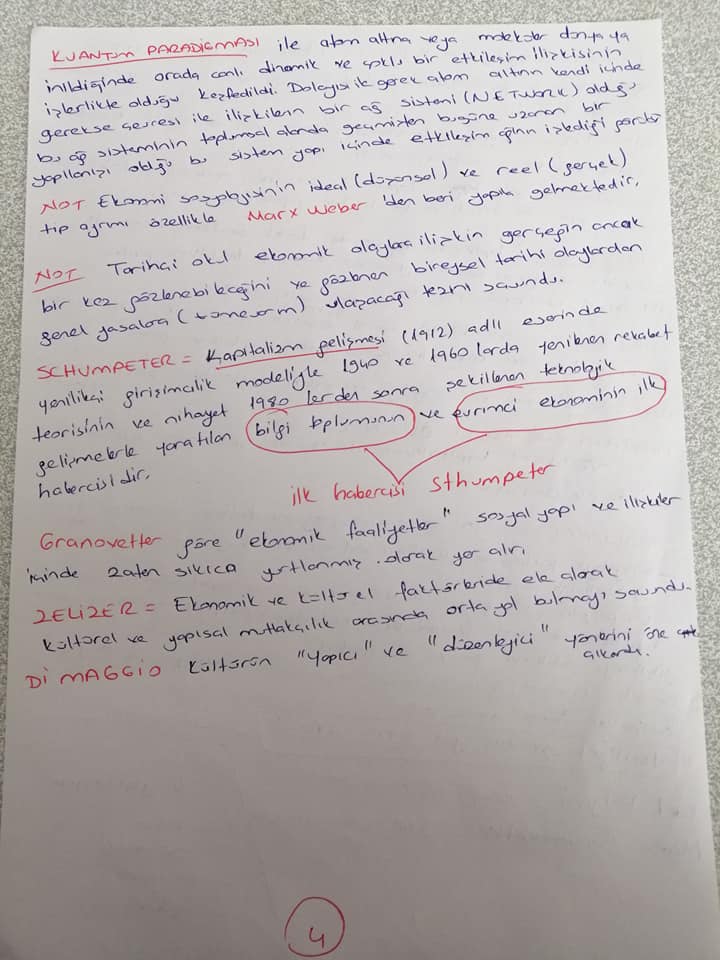 KUANTUM PARADİGMASI ile atom altına veya moleküler dünyaya
inildiğinde orada canlı dinamik ve çoklu bir etkileşim ilişkisinin
işlerlikte olduğu keşfedildi. Dolayısı ile gerek atom altının kendi içinde
gerekse çevresi ile ilişkilerin bir ağ sistemi (NETWORK) olduğu
bu ağ sisteminin toplumsal alanda geçmişten bugüne uzanan bir
yapılanışı olduğu bu sistem yapı içinde etkileşim ağının işlediği
NOT Ekonomi sosyolojisinin ideal (düşünsel) ve reel (gerçek)
tip ayrımı özellikle Marx Weber 'den beri yapıla gelmektedir.
NOT Tarihçi okul ekonomik olaylara ilişkin gerçeğin ancak
bir kez gözlenebileceğini ve gözlenen bireysel tarihi olaylardan
genel yasalara (tümevarım) ulaşacağı tezini savundu.
SCHUMPETER = Kapitalizm gelişmesi (1912) adlı eserinde
yenilikçi girişimcilik modeliyle 1940 ve 1960 larda yenilenen rekabet
teorisinin ve nihayet 1980 lerden sonra şekillenen teknolojik
gelişmelerle yaratılan bilgi toplumunun ve evrimci ekonominin ilk
habercisidir.
ilk habercisi Sthumpeter
Granovetter göre "ekonomik faaliyetler" sosyal yapı ve ilişkiler
içinde zaten sıkıca yurtlanmış olarak yer alır.
ZELİZER = Ekonomik ve kültürel faktörleride ele alarak
kültürel ve yapısal mutlakçılık arasında orta yol bulmayı savundu.
Dİ MAGGİO Kültürün "yapıcı" ve "düzenleyici" yönlerini öne
çıkardı.
4